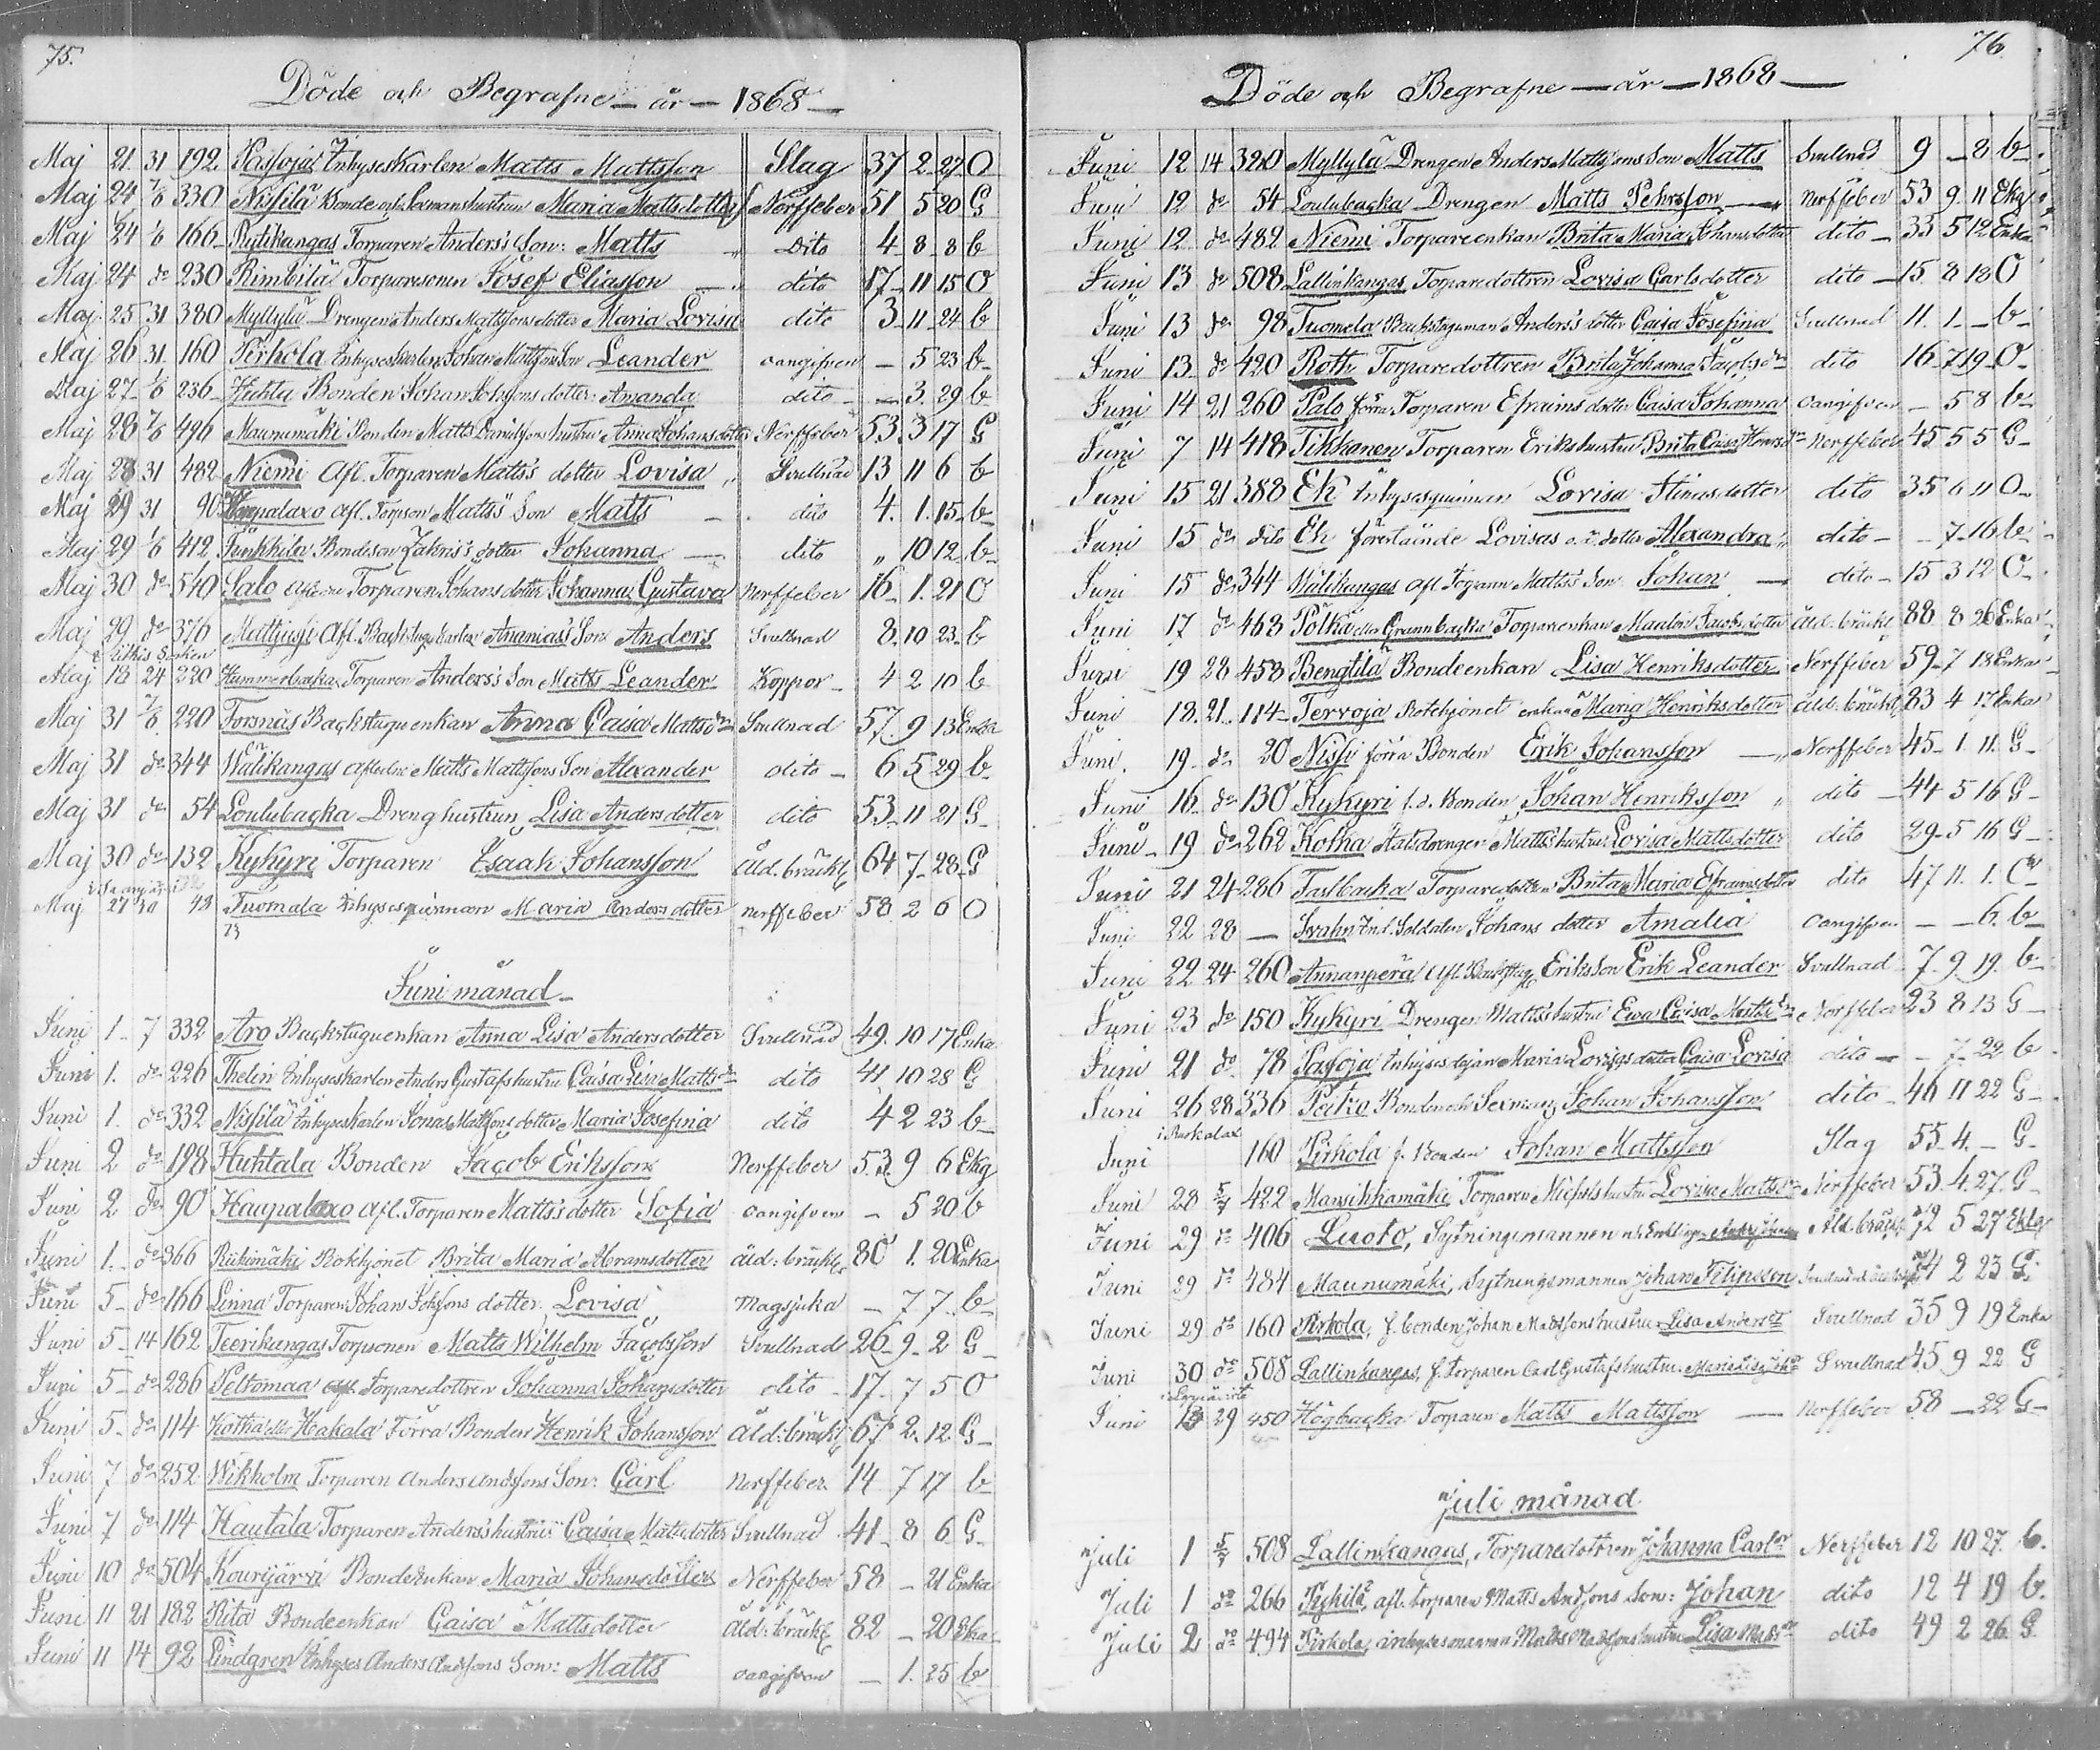 75.
Döde och Begrafne — år — 1868 —
Maj 21. 31 192. Pasoja Inhyseskarlen Matts Mattsson Slag 37 2 27 O
Maj 24 7/6 330 Nissilä Bonde och Sexmanshustrun Maria Mattsdotter Nerffeber 51 5 20 G
Maj 24 1/6 166 Rytikangas Torparen Anders's Son: Matts Dito 4 8 8 b
Maj 24 do 230 Rimbilä Torparesonen Josef Eliasson dito 17 11 15 O
Maj 25 31 380 Myllylä Drengen Anders Mattssons dotter Maria Lovisa dito 3 11 24 b
Maj 26 31. 160 Pirkola Inhyseskarlen Johan Mattssons Son Leander oangifven — 5 23 b
Maj 27 1/6 236 Huhta Bonden Johan Johssons dotter: Amanda dito — 3. 29 b
Maj 28 7/6 496 Maunumäki Bonden Matts Danielssons hustru Anna Johansdotter Nerffeber 53. 3 17 G
Maj 28 31 482 Niemi Afl. Torparen Matts's dotter Lovisa Svullnad 13 11 6 b
Maj 29 31 90 Haapalaxo afl. Torpson Matts's Son Matts dito 4. 1. 15 b
Maj 29 1/6 412 Junkkila Bondeson Zakris's dotter Johanna dito " 10 12 b
Maj 30 do 540 Salo Torparen Johans dotter Johanna Gustava Nerffeber 16 1. 21 O
Maj 29 do 376 Mattjussi Afl. Backstugu karlen Ananias's Son Anders Svullnad 8. 10 23 b
Maj 18 24 220 Hammarbacka Torparen Anders's Son Matts Leander Koppor 4 2 10 b
Maj 31 7/6 220 Forsnäs Backstuguenkan Anna Caisa Mattsdr Svullnad 57. 9 13 Enka
Maj 31 do 344 Wälikangas afledne Matts Mattssons Son Alexander dito 6 5 29 b
Maj 31 do 54 Loulubacka Dreng hustrun Lisa Andersdotter dito 53 11 21 G
Maj 30 do 132 Kykyri Torparen Esaak Johansson Åld. bräckl. 64 7 28 G
Maj 27 30 48 Tuomala Inhysesqvinnan Maria Andersdotter nerffeber 58 2 6 O
73
Juni månad
Juni 1. 7 332 Aro Backstuguenkan Anna Lisa Andersdotter Svullnad 49. 10 17 Enka
Juni 1. do 226 Thelin Inhyseskarlen Anders Gustafs hustru Caisa Lisa Mattsdr dito 41 10 28 G
Juni 1. do 332 Nissilä Inhyseskarlen Jonas Mattssons dotter Maria Josefina dito 4 2 23 b
Juni 2 do 198 Huhtala Bonden Jacob Eriksson Nerffeber 53. 9 6 Ekg
Juni 2 do 90 Haapalaxo afl. Torparen Matts's dotter Sofia oangifven — 5 20 b
Juni 1. do 366 Riihimäki Rotehjonet Brita Maria Abramsdotter åld: bräckl. 80 1. 20 Enka
Juni 5 do 166 Linna Torparen Johans Johssons dotter. Lovisa Magsjuka — 7 7 b
Juni 5 14 162 Teerikangas Torpsonen Matts Wilhelm Jacobsson Svullnad 26 9 2 G
Juni 5 do 286 Peltomaa afl. Torparedottren Johanna Johansdotter dito 17. 7 5 O
Juni 5 do 114 Kotka eller Hakala Förra Bonden Henrik Johansson åld: bräckl. 67. 2. 12 G
Juni 7 do 252 Wikholm Torparen Anders Andssons Son: Carl Nerffeber 14 7 17 b
Juni 7 do 114 Hautala Torparen Anders's hustru Caisa Mattsdotter Svullnad 41 8 6 G
Juni 10 do 504 Kouvijärvi Bondeenkan Maria Johansdotter Nerffeber 58 — 21 Enka
Juni 11 21 182 Rita Bondeenkan Caisa Mattsdotter åld: bräckl. 82 — 20 Eka
Juni 11 14 92 Lindgren Inhyses Anders Andssons Son: Matts oangifven — 1. 25 b
76.
Döde och Begrafne — år — 1868 —
Juni 12 14 320 Myllylä Drengen Anders Mattssons Son Matts Svullnad 9 — 8 b
Juni 12 do 54 Loulubacka Drengen Matts Pehrsson nerffeber 53 9 11 Ekg
Juni 12 do 482 Niemi Torpareenkan Brita Maria Johansdotter dito 33 5 12 Enka
Juni 13 do 508 Lallinkangas Torparedottren Lovisa Carlsdotter dito 15 8 18 O
Juni 13 do 98 Tuomela Backstuguman Anders's dotter Caisa Josefina Svullnad 11. 1. — b
Juni 13 do 420 Roth Torparedottren Brita Johanna Jacobsdr dito 16 7 19 O
Juni 14 21 260 Palo förra Torparen Efraims dotter Caisa Johanna Oangifven — 5 8 b
Juni 7 14 418 Tikkanen Torparen Eriks hustru Brita Caisa Nerffeber 45 5 5 G
Juni 15 21 388 Ek Inhysesqvinnan Lovisa Stinasdotter dito 35 6 11 O
Juni 15 do dito Ek förestående Lovisas o.ä. dotter Alexandra dito — 7 16 b
Juni 15 do 344 Wälikangas afl Torparen Matts's Son Johan dito 15 3 12 O
Juni 17 do 468 Pölkä eller Grannbacka Torpareenkan Jacobsdotter åld. bräckl 88 8 26 Enka
Juni 19 28 458 Bengtila Bondeenkan Lisa Henriksdotter Nerffeber 59 7 18 Enka
Juni 18. 21. 114 Tervoja Rotehjonet enkan Maria Henriksdotter åld. bräckl 83 4 17 Enka
Juni. 19 do 20 Nissi förra Bonden Erik Johansson Nerffeber 45 1. 11. G
Juni 16 do 130 Kykyri f.d. Bonden Johan Henriksson dito 44 5 16 G
Juni 19 do 262 Kotka Matts's hustru Lovisa Mattsdotter dito 29 5 16 G
Juni 21 24 286 Fastbacka Torparedottren Brita Maria Efraimsdotter dito 47 11. 1. O
Juni 22 28 — Svahn Ind. Soldaten Johans dotter Amalia Oangifven — — 6. b
Juni 22 24 260 Annanperä Afl. Backstug. Eriks Son Erik Leander Svullnad 7. 9 19. b
Juni 23 do 150 Kykyri Drengen Matts's hustru Ewa Caisa Mattsdr Nerffeber 23 8 13 G
Juni 21 do 78 Pasoja Inhysespigan Maria Lovisas dotter Caisa Lovisa dito — 7 22 b
Juni 26 28 336 Peitzo Bonden och Sexman Johan Johansson dito 46 11 22 G
Juni 160 Pirkola f. Bonden Johan Mattsson Slag 55 4. — G
Juni 28 5/7 422 Mansikkamäki Torparen Michels hustru Lovisa Mattsdr Nerffeber 53. 4. 27. G
Juni 29 do 406 Luoto, Sytningsmannen Åld. bräckl. 72 5 27 Eklg
Juni 29 do 484 Maunumäki, Sytningsmannen Johan Filipsson 74 2 23 G.
Juni 29 do 160 Pirkola, f. bonden Johan Mattssons hustru Lisa Andersdr Svullnad 35 9 19 Enka
Juni 30 do 508 Lallinkangas, f. torparen Carl Gustafs hustru Maria Lisa Svullnad 45 9 22 G
Juni 29 450 Högbacka Torparen Matts Mattsson Nerffeber 58 — 22 G
Juli månad
Juli 1 5/7 508 Lallinkangas, Torparedottren Johanna Carlsdr Nerffeber 12 10 27. b.
Juli 1 do 266 afl. torparen Matts Andssons Son: Johan dito 12 4 19 b.
Juli 2 do 494 Pirkola, inhysesmannen Matts Mattssons hustru Lisa Mattsdr dito 49 2 26. G.